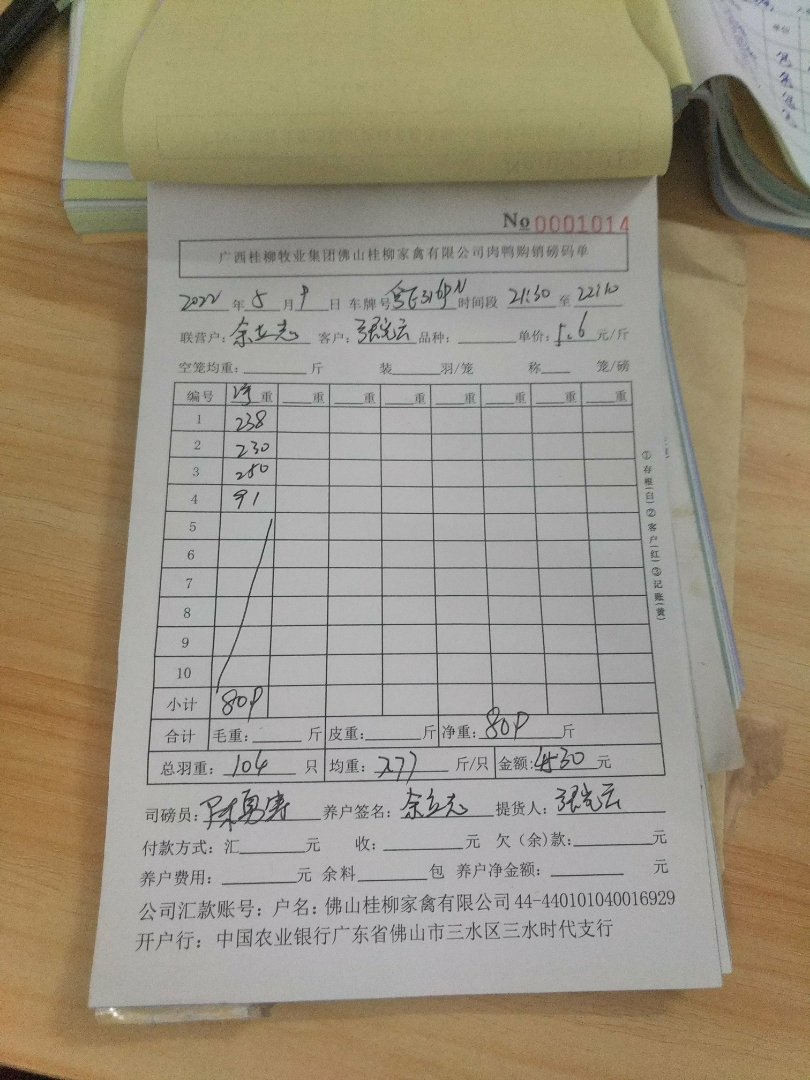 No 0001014
广西桂柳牧业集团佛山桂柳家禽有限公司肉鸭购销磅码单
2022 年 5 月 9 日 车牌号 时间段 21:30 至 22:10
联营户: 余立志 客户: 张光云 品种: 单价: 5.6 元/斤
空笼均重: 斤 装 羽/笼 称 笼/磅
编号 净重 重 重 重 重 重 重 重
1 238
2 230
3 250
4 91
5
6
7
8
9
10
小计 809
合计 毛重: 斤 皮重: 斤 净重: 809 斤
总羽重: 104 只 均重: 7.77 斤/只 金额: 4530 元
司磅员: 陈勇涛 养户签名: 余立志 提货人: 张光云
付款方式: 汇 元 收: 元 欠(余)款: 元
养户费用: 元 余料 包 养户净金额: 元
公司汇款账号: 户名: 佛山桂柳家禽有限公司 44-440101040016929
开户行: 中国农业银行广东省佛山市三水区三水时代支行
①存根(白)②客户(红)③记账(黄)